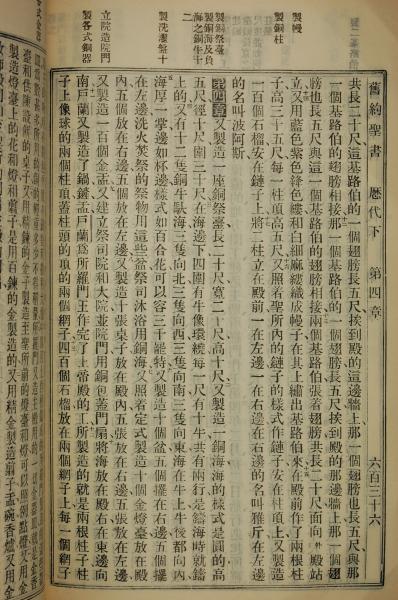 舊約聖書 歷代下 第四章 六百三十六
共長二十尺這基路伯的一個翅膀長五尺挨到殿的這邊牆上那一個翅膀也長五尺與那
一個基路伯的翅膀相接那一個基路伯的一個翅膀長五尺挨到殿的那邊牆上那一個翅
製幔
膀也長五尺與這一個基路伯的翅膀相接兩個基路伯張着翅膀共長二十尺面向外殿站
製銅柱
立又用藍色紫色絳色縷和白細麻縷織成幔子在其上繡出基路伯來在殿前作了兩根柱
子高三十五尺每一柱頂高五尺又照着聖所內的鏈子的樣式作鏈子安在柱頂上又製造
一百個石榴安在鏈子上將二柱立在殿前一在左邊一在右邊在右邊的名叫雅斤在左邊
的名叫波阿斯
製銅祭臺
製銅海及負
海之銅牛十
二
第四章又製造一座銅祭臺長二十尺寬二十尺高十尺又製造一銅海海的樣式是圓的高
五尺徑十尺圍三十尺在海邊下四圍有牛像環繞每一尺有十牛共有兩行是鑄海時就鑄
上的又有十二隻銅牛馱海三隻向北三隻向西三隻向南三隻向東海在牛上牛後都向內
製洗濯盤十
海厚一掌邊如杯邊樣式如百合花可以容三千罷特又製造十個盆五個擺在右邊五個擺
在左邊洗火焚祭的祭物用這些盆祭司沐浴用銅海又照着定式製造十個金燈臺放在殿
內五個放在右邊五個放在左邊又製造十張桌子放在殿內五張放在右邊五張放在左邊
立院造院門
又製造一百個金盂又建立祭司院和大院並院門用銅包蓋門扇將海放在殿右在東邊向
製各式銅器
南戶蘭又製造了鍋鏟盂戶蘭爲所羅門王作完了上帝殿的工所製造的就是兩根柱子柱
子上像球的兩個柱頂蓋柱頭的頂的兩個網子四百個石榴放在兩個網子上每一個網子